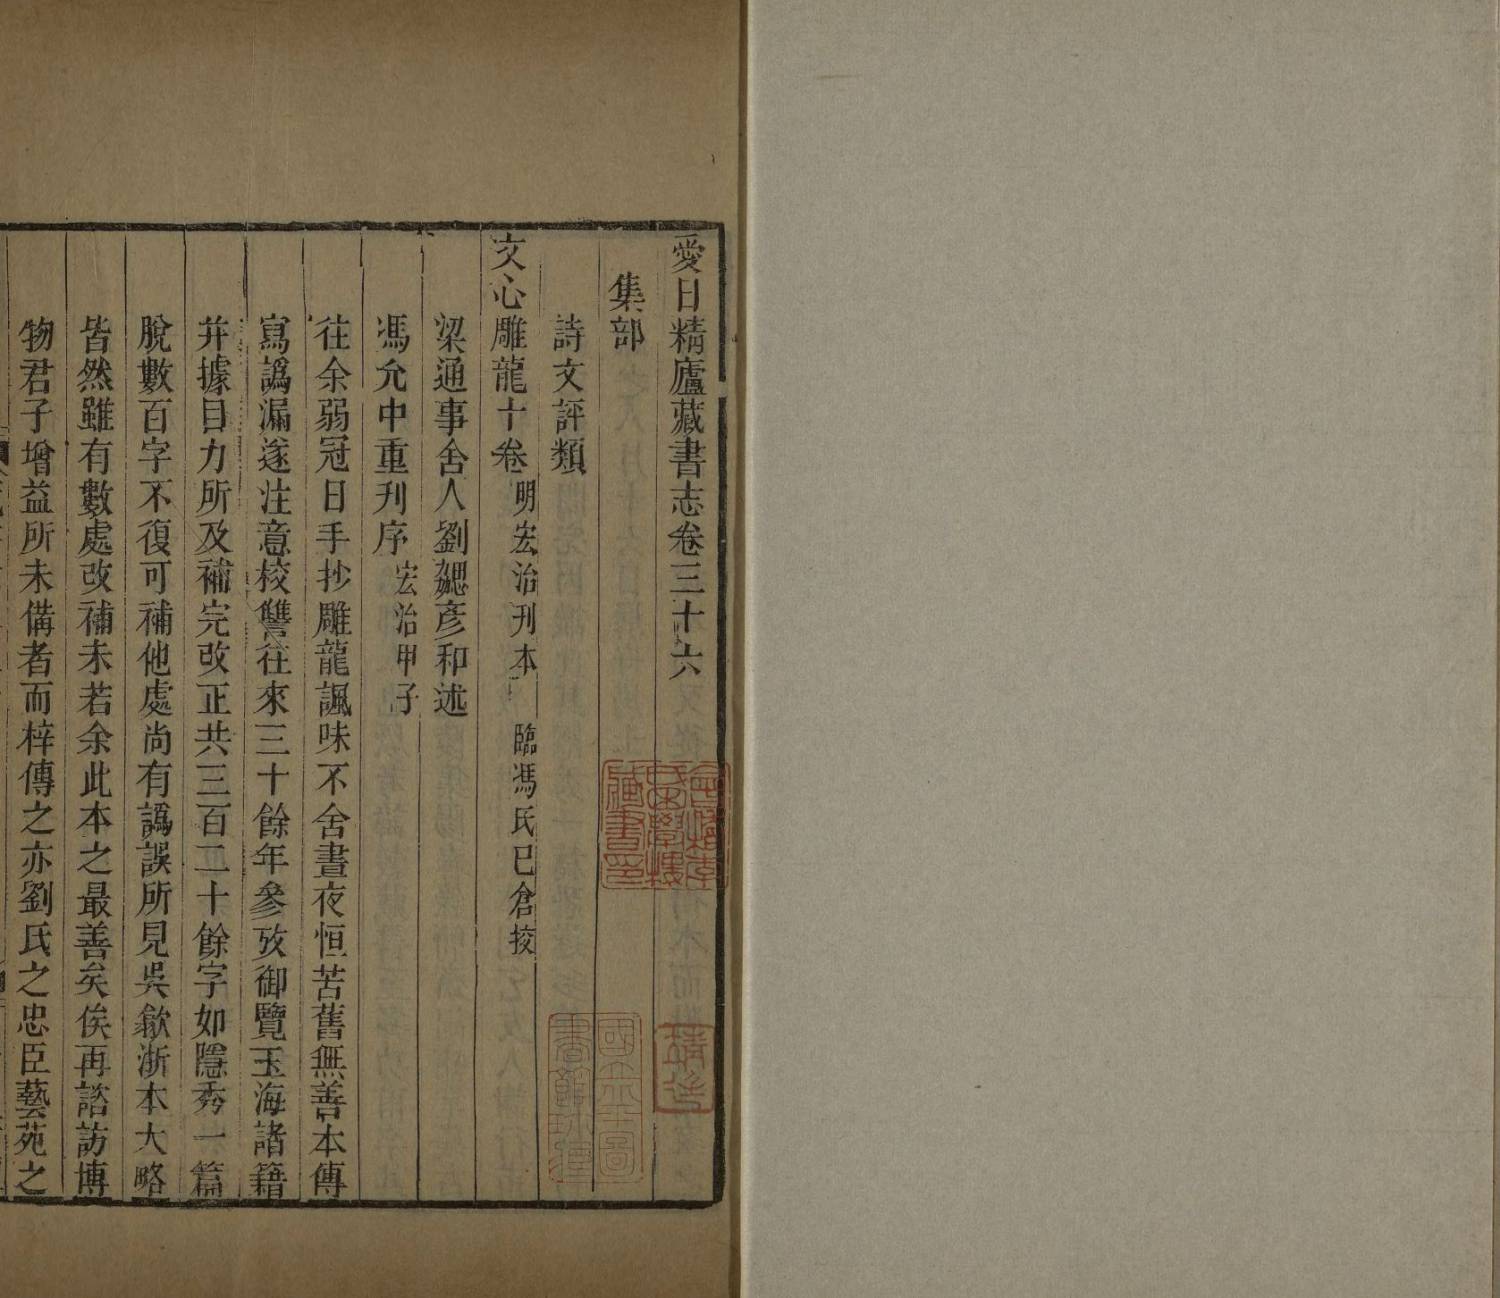 愛日精廬藏書志卷三十六
集部
詩文評類
文心雕龍十卷 明宏治刊本 臨馮氏已倉挍
梁通事舍人劉勰彥和述
馮允中重刋序 宏治甲子
往余弱冠日手抄雕龍諷味不舍晝夜恒苦舊無善本傳
寫譌漏遂注意校讐往來三十餘年參攷御覽玉海諸籍
并據目力所及補完改正共三百二十餘字如隱秀一篇
脫數百字不復可補他處尚有譌誤所見吳歙浙本大略
皆然雖有數處改補未若余此本之最善矣俟再諮訪博
物君子增益所未備者而梓傳之亦劉氏之忠臣藝苑之
國立中央圖
書館
藏書印